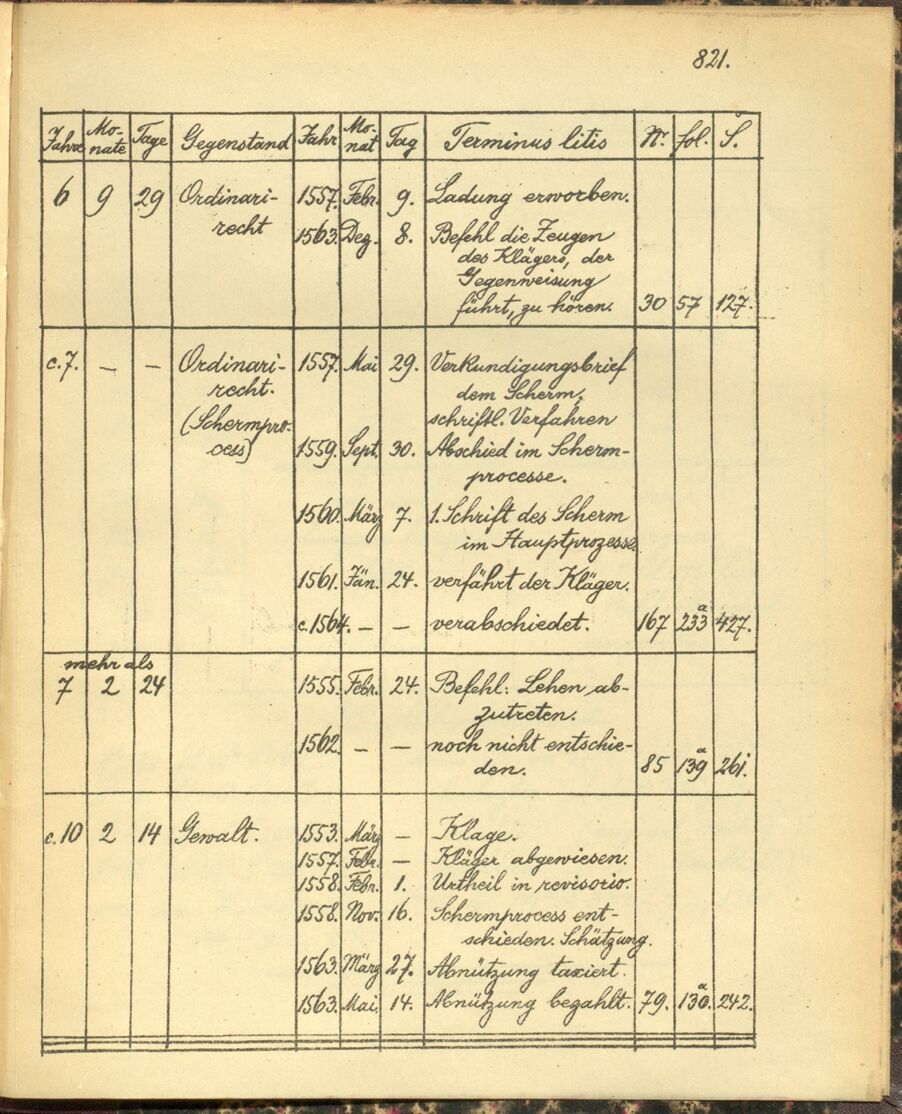 821.
Jahre Mo- Tage Gegenstand Jahr Mo- Tag Terminus litis Nr. fol. S.
nate nat
6 9 29 Ordinari- 1557. Febr. 9. Ladung erworben.
recht 1563. Dez. 8. Befehl die Zeugen
des Klägers, der
Gegenweisung
führt, zu hören. 30 57 127.
c. 7. — — Ordinari- 1557. Mai 29. Verkundigungsbrief
recht. dem Scherm,
(Schermpro- schriftl. Verfahren
cess) 1559. Sept. 30. Abschied im Scherm-
processe.
1560. März 7. 1. Schrift des Scherm
im Hauptprozesse.
1561. Jän. 24. verfährt der Kläger.
c. 1564. — — verabschiedet. 167 233a 427.
mehr als
7 2 24 1555. Febr. 24. Befehl: Lehen ab-
zutreten.
1562. — — noch nicht entschie-
den. 85 139a 261.
c. 10 2 14 Gewalt. 1553. März — Klage.
1557. Febr. — Kläger abgewiesen.
1558. Febr. 1. Urtheil in revisorio.
1558. Nov. 16. Schermprocess ent-
schieden. Schätzung.
1563. März 27. Abnützung taxiert.
1563. Mai 14. Abnützung bezahlt. 79. 130a 242.